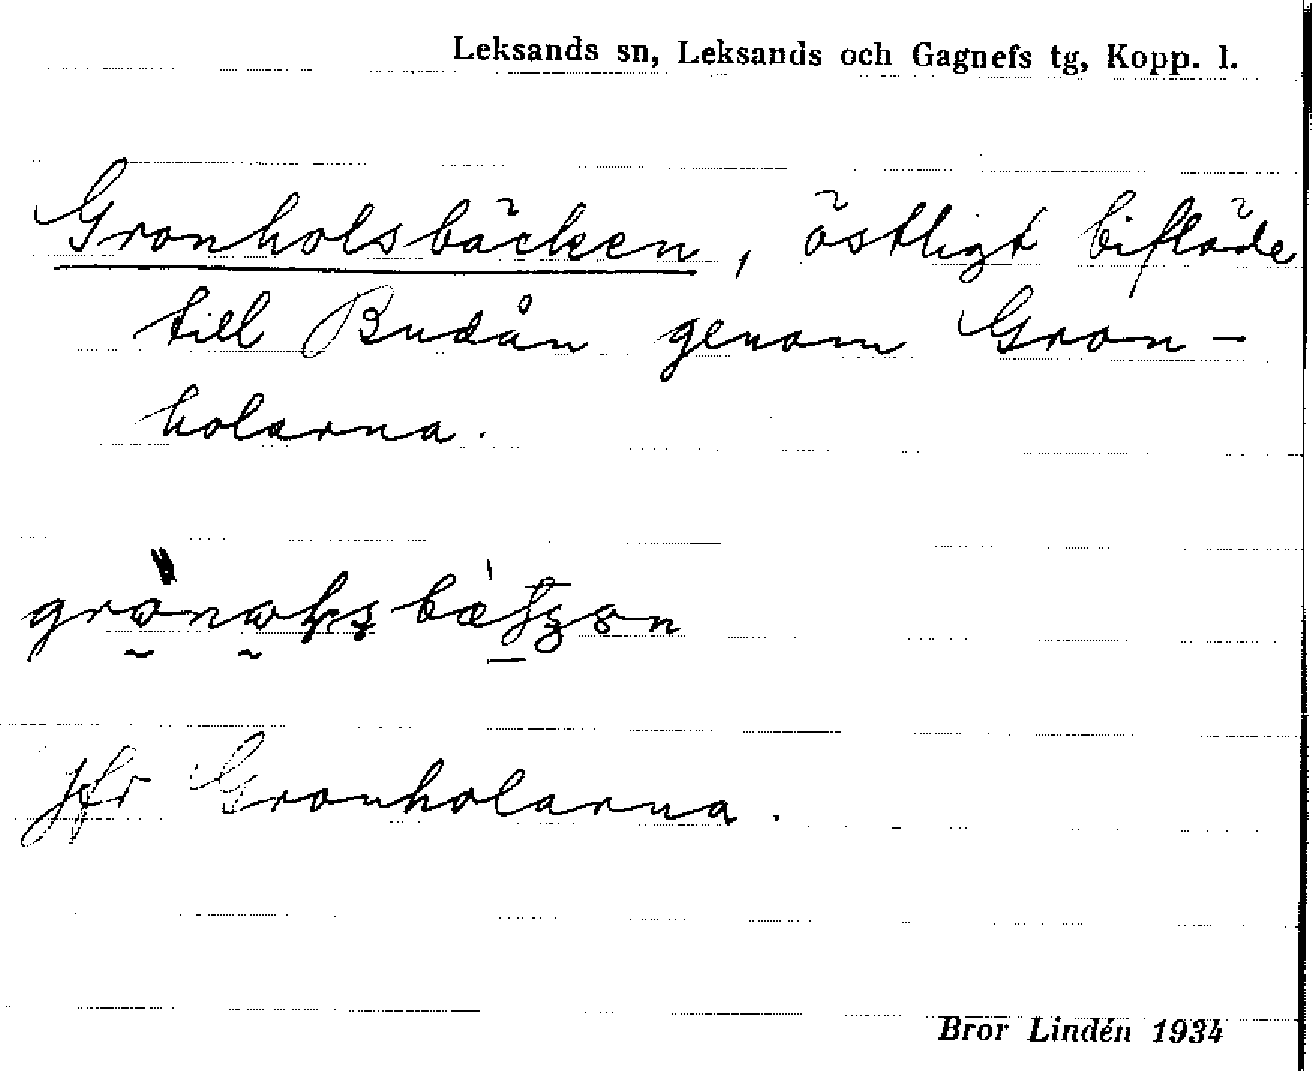 Leksands sn, Leksands och Gagnefs tg, Kopp. l.
Gronholsbäcken, östligt biflöde
till Budån genom Gron-
holarna.
jfr Gronholarna.
Bror Lindén 1934